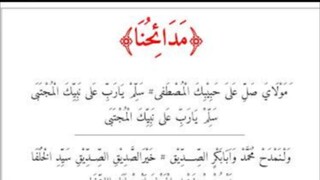 ﴿مَدَائِحُنَا﴾
مَوْلَايَ صَلِّ عَلَى حَبِيْبِكَ الْمُصْطَفٰى * سَلِّمْ يَارَبِّ عَلَى نَبِيِّكَ الْمُجْتَبَى
سَلِّمْ يَارَبِّ عَلَى نَبِيِّكَ الْمُجْتَبَى
وَلْنَمْدَحْ مُحَمَّدْ وَاَبَابَكَرِ الصِّدِّيْقِ * خَيْرَالصَّدِيْقِ الصِّدِّيْقِ سَيِّدِ الْخُلَفَا